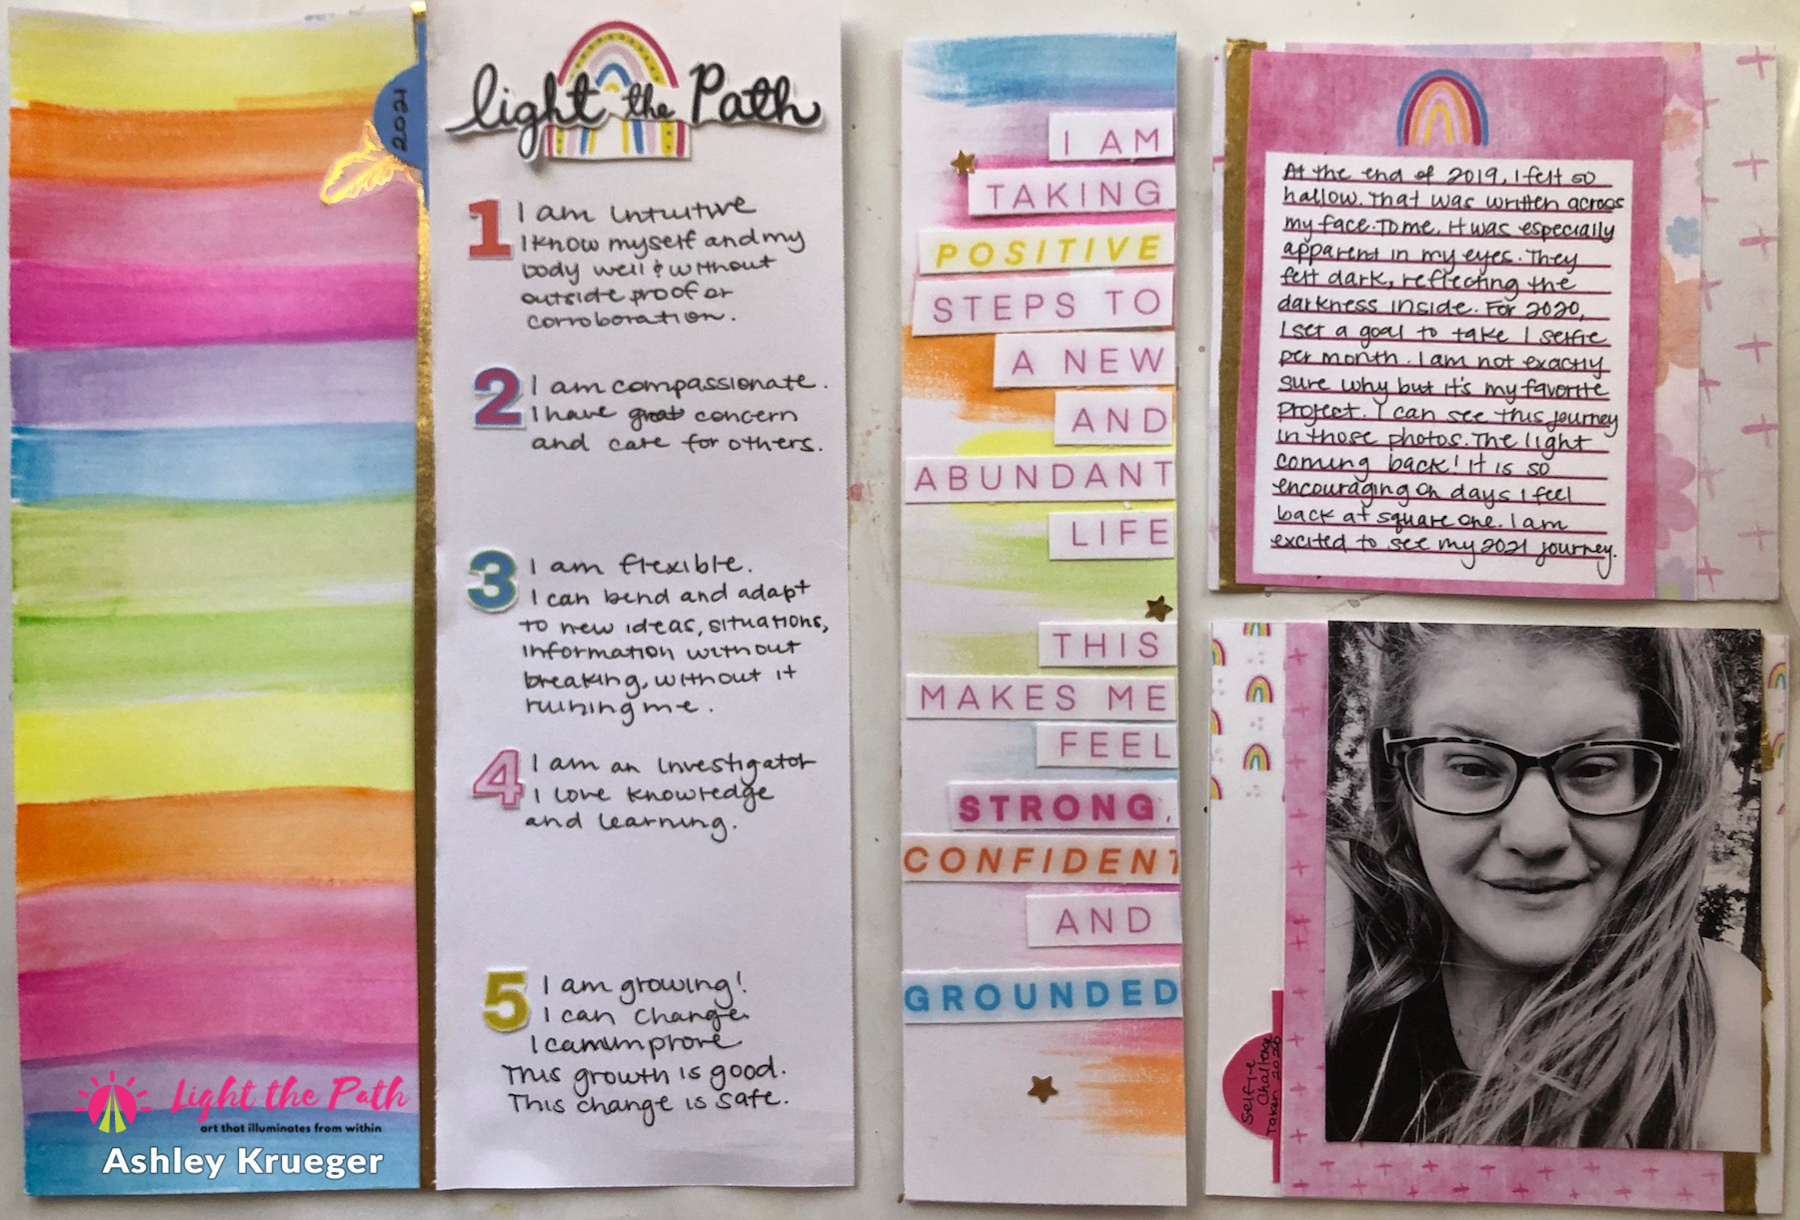 2021
light the Path
1 I am intuitive
I know myself and my
body well & without
outside proof or
corroboration.
2 I am compassionate.
I have great concern
and care for others.
3 I am flexible.
I can bend and adapt
to new ideas, situations,
information without
breaking, without it
ruining me.
4 I am an investigator
I love knowledge
and learning.
5 I am growing!
I can change.
I can improve
This growth is good.
This change is safe.
Light the Path
art that illuminates from within
Ashley Krueger
I AM
TAKING
POSITIVE
STEPS TO
A NEW
AND
ABUNDANT
LIFE
THIS
MAKES ME
FEEL
STRONG,
CONFIDENT
AND
GROUNDED
At the end of 2019, I felt so
hallow. That was written across
my face. To me, it was especially
apparent in my eyes. They
felt dark, reflecting the
darkness inside. For 2020,
I set a goal to take 1 selfie
per month. I am not exactly
sure why but it's my favorite
project. I can see this journey
in those photos. The light
coming back! It is so
encouraging on days I feel
back at square one. I am
excited to see my 2021 journey.
Selfie
Challenge
Taken 2020